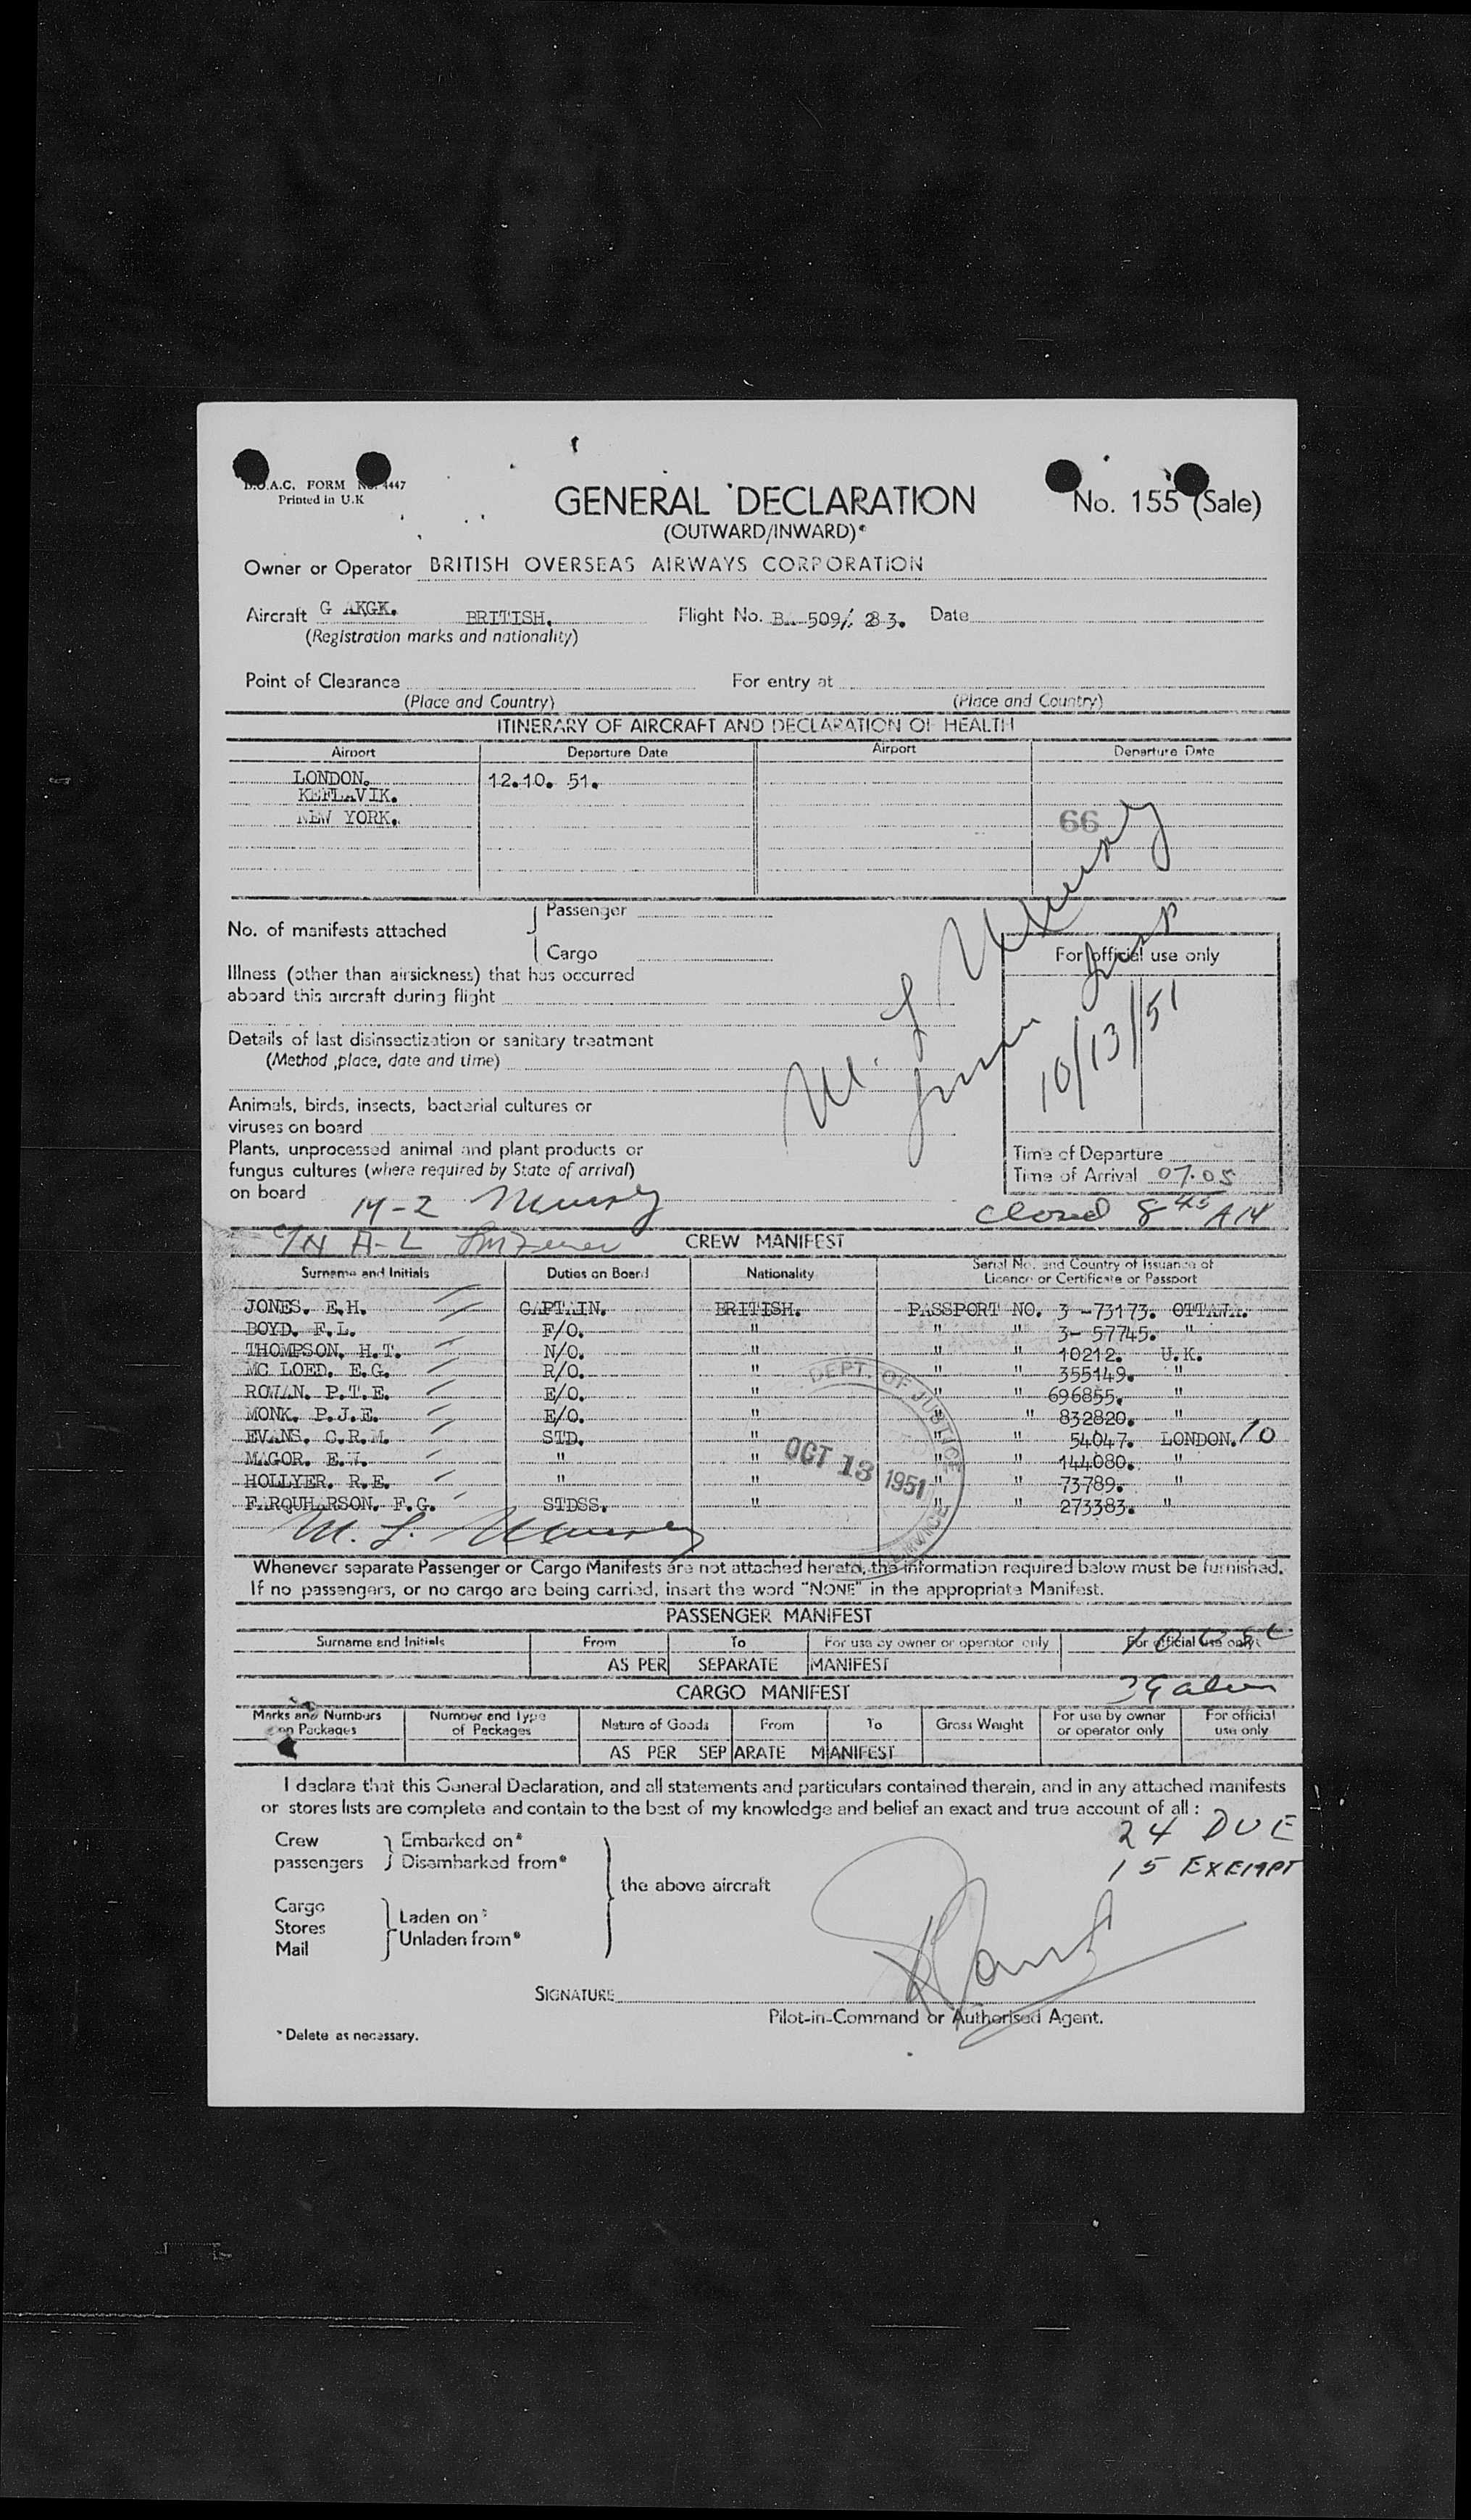 B.O.A.C. FORM No. 4447
Printed in U.K
GENERAL DECLARATION
No. 155 (Sale)
(OUTWARD/INWARD)*
Owner or Operator BRITISH OVERSEAS AIRWAYS CORPORATION
Aircraft G AKGK. BRITISH. Flight No. BA 509/ 283. Date
(Registration marks and nationality)
Point of Clearance For entry at
(Place and Country) (Place and Country)
ITINERARY OF AIRCRAFT AND DECLARATION OF HEALTH
Airport Departure Date Airport Departure Date
LONDON. 12.10. 51.
KEFLAVIK.
NEW YORK. 66
No. of manifests attached Passenger
Cargo
For official use only
Illness (other than airsickness) that has occurred
aboard this aircraft during flight
10/13/51
Details of last disinsectization or sanitary treatment
(Method ,place, date and time)
Animals, birds, insects, bacterial cultures or
viruses on board
Plants, unprocessed animal and plant products or
fungus cultures (where required by State of arrival)
on board
Time of Departure
Time of Arrival 07.05
M-2
Closed 8 45 AM
CREW MANIFEST
Surname and Initials Duties on Board Nationality Serial No. and Country of Issuance of
Licence or Certificate or Passport
JONES. E.H. CAPTAIN. BRITISH. PASSPORT NO. 3 -73173. OTTAWA.
BOYD. F.L. F/O. " " " 3- 57745. "
THOMPSON. H.T. N/O. " " " 10212. U.K.
MC LOED. E.G. R/O. " " " 355149. "
ROWAN. P.T.E. E/O. " " " 696855. "
MONK. P.J.E. E/O. " " " 832820. "
EVANS. C.R.M. STD. " " " 54047. LONDON. 10
MAGOR. E.W. " " " " 144080. "
HOLLYER. R.E. " " " " 73789. "
FARQUHARSON. F.G. STDSS. " " " 273383. "
DEPT. OF JUSTICE
OCT 13 1951
Whenever separate Passenger or Cargo Manifests are not attached hereto, the information required below must be furnished.
If no passengers, or no cargo are being carried, insert the word "NONE" in the appropriate Manifest.
PASSENGER MANIFEST
Surname and Initials From To For use by owner or operator only For official use only
AS PER SEPARATE MANIFEST
CARGO MANIFEST
Marks and Numbers on Packages Number and Type of Packages Nature of Goods From To Gross Weight For use by owner or operator only For official use only
AS PER SEPARATE MANIFEST
I declare that this General Declaration, and all statements and particulars contained therein, and in any attached manifests
or stores lists are complete and contain to the best of my knowledge and belief an exact and true account of all :
24 DUE
15 EXEMPT
Crew Embarked on*
passengers Disembarked from*
the above aircraft
Cargo
Stores Laden on*
Mail Unladen from*
SIGNATURE
Pilot-in-Command or Authorised Agent.
*Delete as necessary.